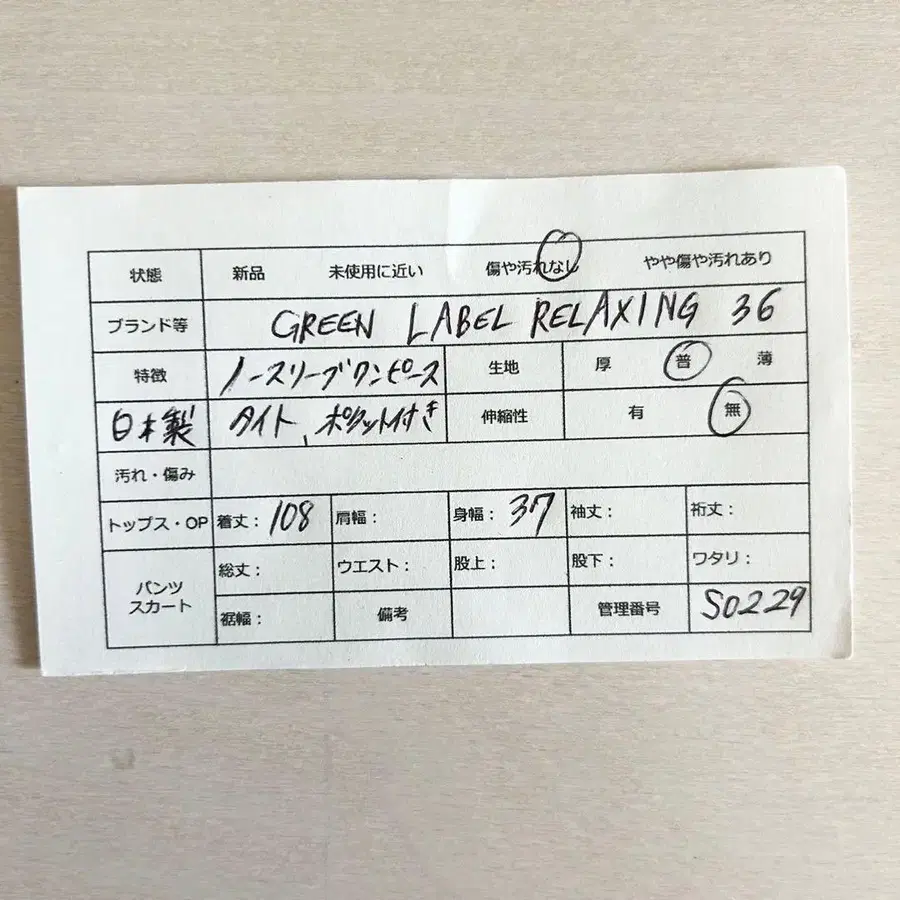 状態 新品 未使用に近い 傷や汚れなし やや傷や汚れあり
ブランド等 GREEN LABEL RELAXING 36
特徴 ノースリーブワンピース 生地 厚 普 薄
日本製 タイト、ポケット付き 伸縮性 有 無
汚れ・傷み
トップス・OP 着丈：108 肩幅： 身幅：37 袖丈： 裄丈：
パンツ スカート 総丈： ウエスト： 股上： 股下： ワタリ：
裾幅： 備考 管理番号 S0229